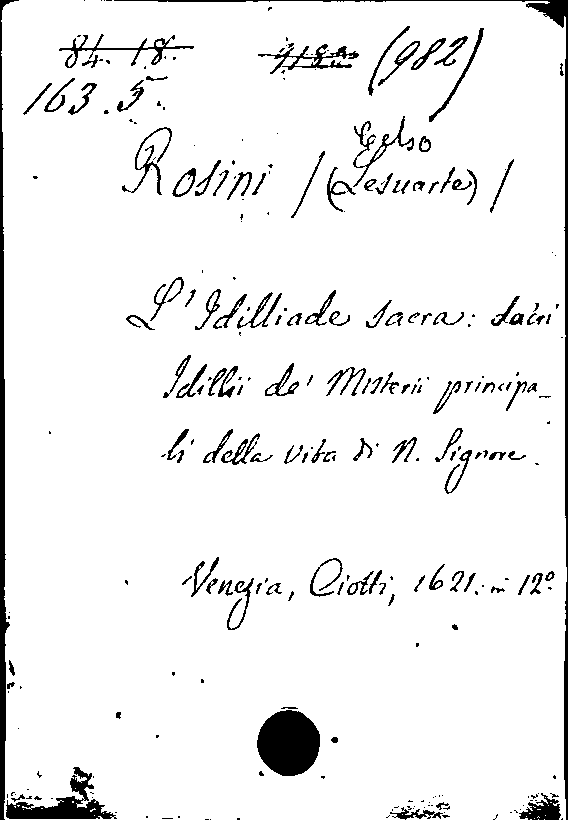 84. 18. (982)
163.5.
Celso
Rosini / (Lesuarte) /
L'Idilliade sacra: sacri
Idillii de' Misterii principa_
li della vita di N. Signore.
Venezia, Ciotti, 1621. in 12º